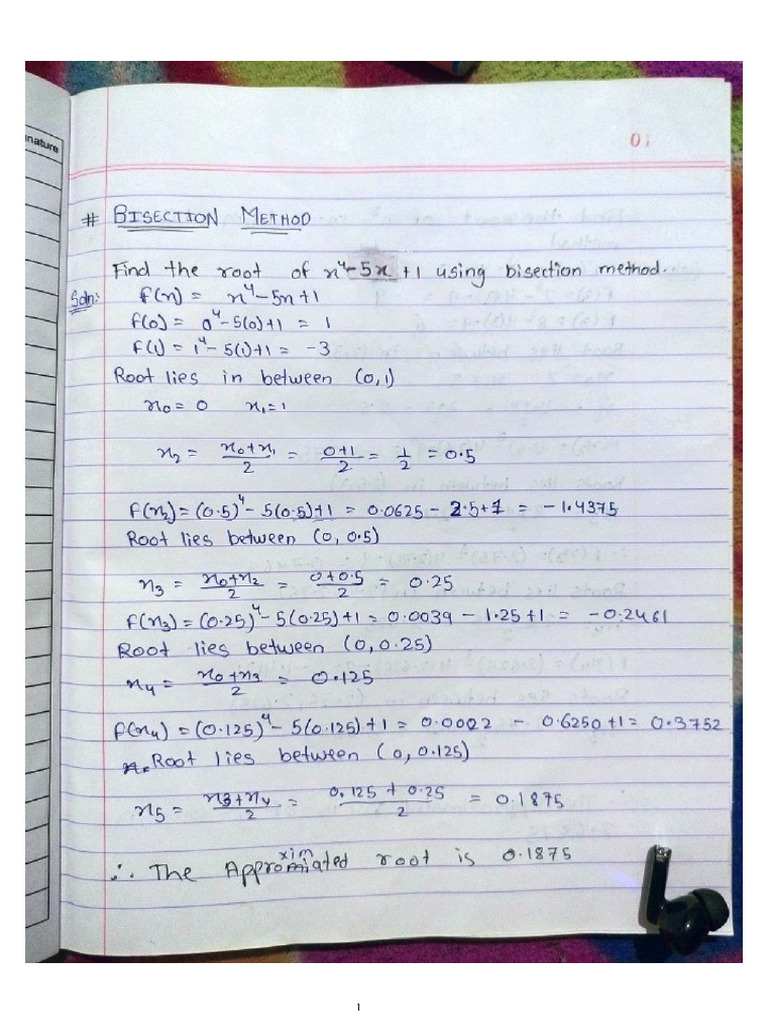 nature
01
# BISECTION METHOD
Find the root of x⁴-5x+1 using bisection method.
Soln: f(x) = x⁴-5x+1
f(0) = 0⁴-5(0)+1 = 1
f(1) = 1⁴-5(1)+1 = -3
Root lies in between (0,1)
x₀ = 0 x₁=1
x₂ = (x₀+x₁)/2 = (0+1)/2 = 1/2 = 0.5
f(x₂) = (0.5)⁴-5(0.5)+1 = 0.0625 - 2.5+1 = -1.4375
Root lies between (0, 0.5)
x₃ = (x₀+x₂)/2 = (0+0.5)/2 = 0.25
f(x₃) = (0.25)⁴-5(0.25)+1 = 0.0039 - 1.25+1 = -0.2461
Root lies between (0, 0.25)
x₄ = (x₀+x₃)/2 = 0.125
f(x₄) = (0.125)⁴-5(0.125)+1 = 0.0002 - 0.6250+1 = 0.3752
Root lies between (0, 0.125)
x₅ = (x3+x₄)/2 = (0.125+0.25)/2 = 0.1875
∴ The Approximiated root is 0.1875
1